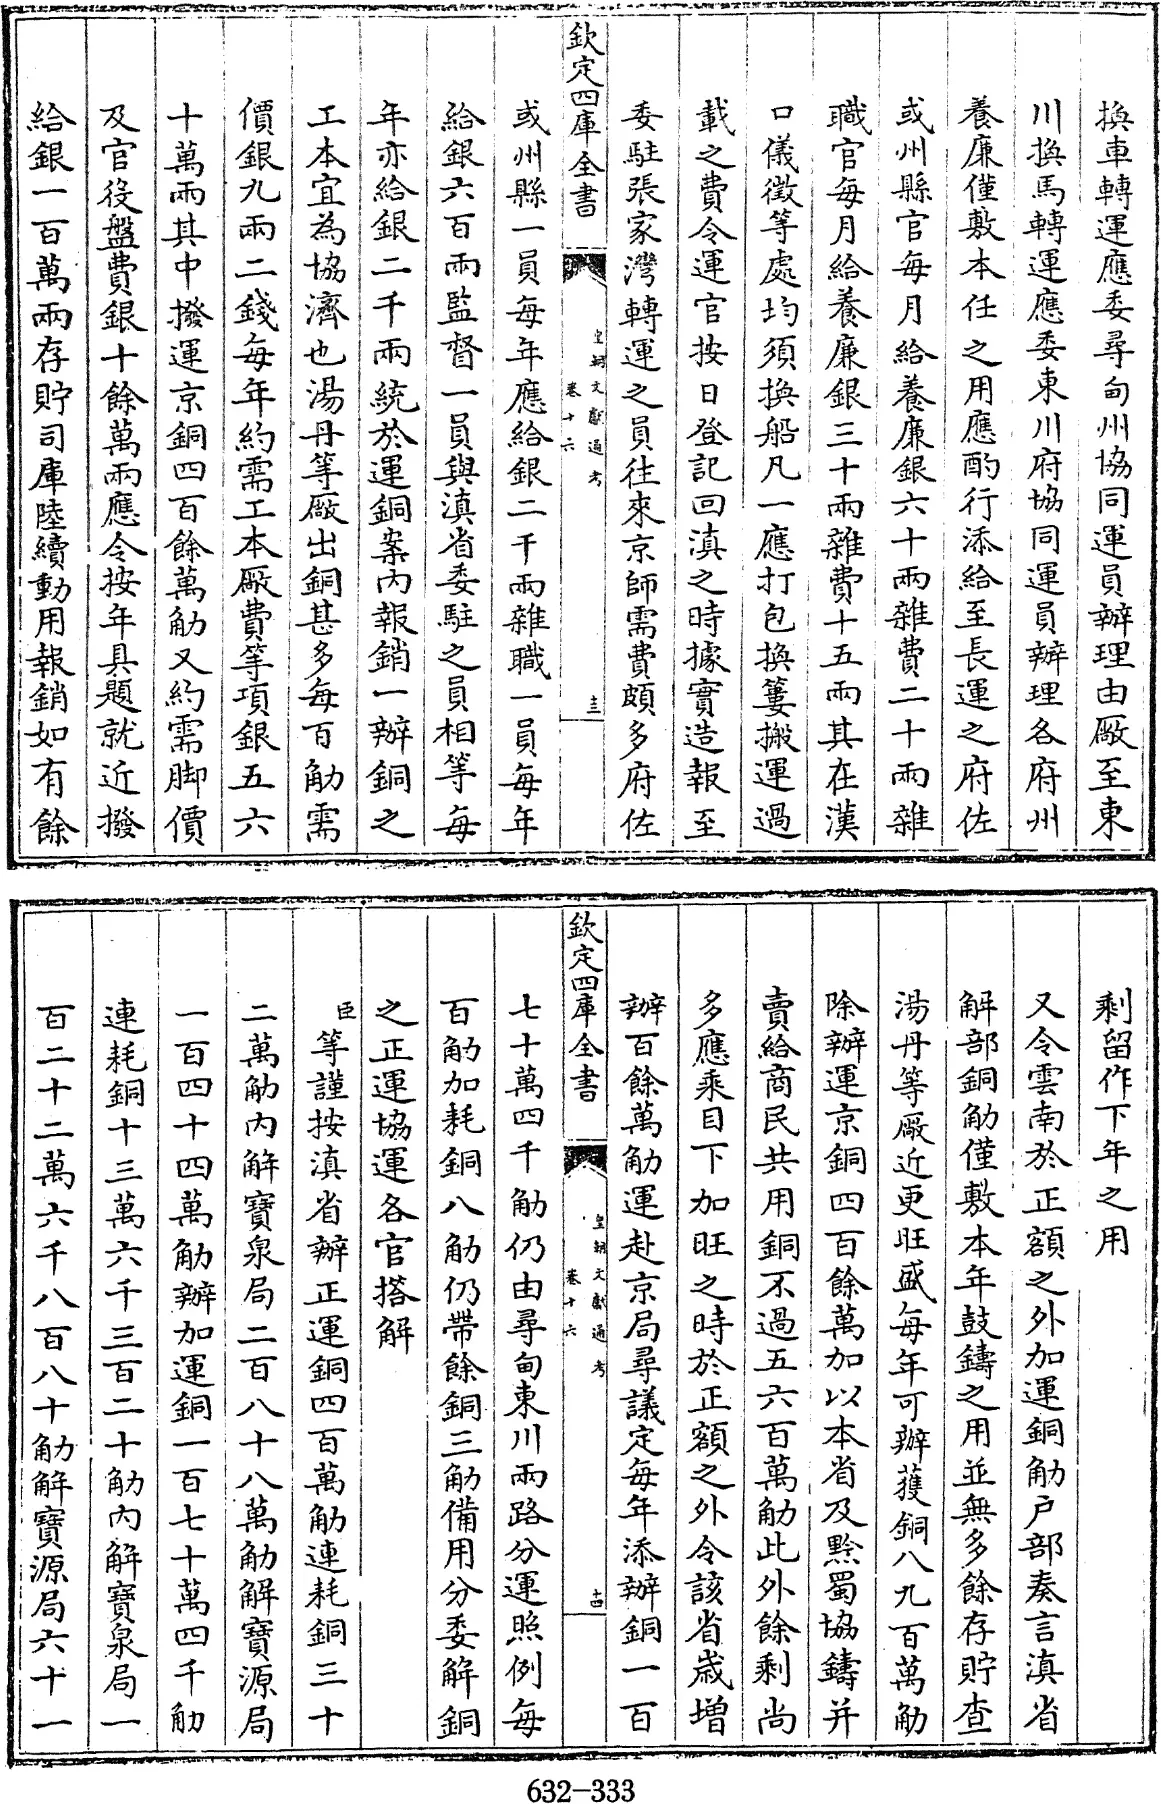 換車轉運應委尋甸州協同運員辦理由厰至東
川換馬轉運應委東川府協同運員辦理各府州
養廉僅敷本任之用應酌行添給至長運之府佐
或州縣官每月給養廉銀六十兩雜費二十兩雜
職官每月給養廉銀三十兩雜費十五兩其在漢
口儀徵等處均須換船凡一應打包換簍搬運過
載之費令運官按日登記回滇之時據實造報至
委駐張家灣轉運之員往來京師需費頗多府佐
欽定四庫全書
皇朝文獻通考
卷十六
十三
或州縣一員每年應給銀二千兩雜職一員每年
給銀六百兩監督一員與滇省委駐之員相等每
年亦給銀二千兩統於運銅案內報銷一辦銅之
工本宜為協濟也湯丹等厰出銅甚多每百觔需
價銀九兩二錢每年約需工本厰費等項銀五六
十萬兩其中撥運京銅四百餘萬觔又約需脚價
及官役盤費銀十餘萬兩應令按年具題就近撥
給銀一百萬兩存貯司庫陸續動用報銷如有餘
剩留作下年之用
又令雲南於正額之外加運銅觔户部奏言滇省
解部銅觔僅敷本年鼓鑄之用並無多餘存貯查
湯丹等厰近更旺盛每年可辦獲銅八九百萬觔
除辦運京銅四百餘萬加以本省及黔蜀協鑄并
賣給商民共用銅不過五六百萬觔此外餘剩尚
多應乘目下加旺之時於正額之外令該省歲增
辦百餘萬觔運赴京局尋議定每年添辦銅一百
欽定四庫全書
皇朝文獻通考
卷十六
十四
七十萬四千觔仍由尋甸東川兩路分運照例每
百觔加耗銅八觔仍帶餘銅三觔備用分委解銅
之正運協運各官搭解
臣等謹按滇省辦正運銅四百萬觔連耗銅三十
二萬觔內解寶泉局二百八十八萬觔解寶源局
一百四十四萬觔辦加運銅一百七十萬四千觔
連耗銅十三萬六千三百二十觔內解寶泉局一
百二十二萬六千八百八十觔解寶源局六十一
632-333